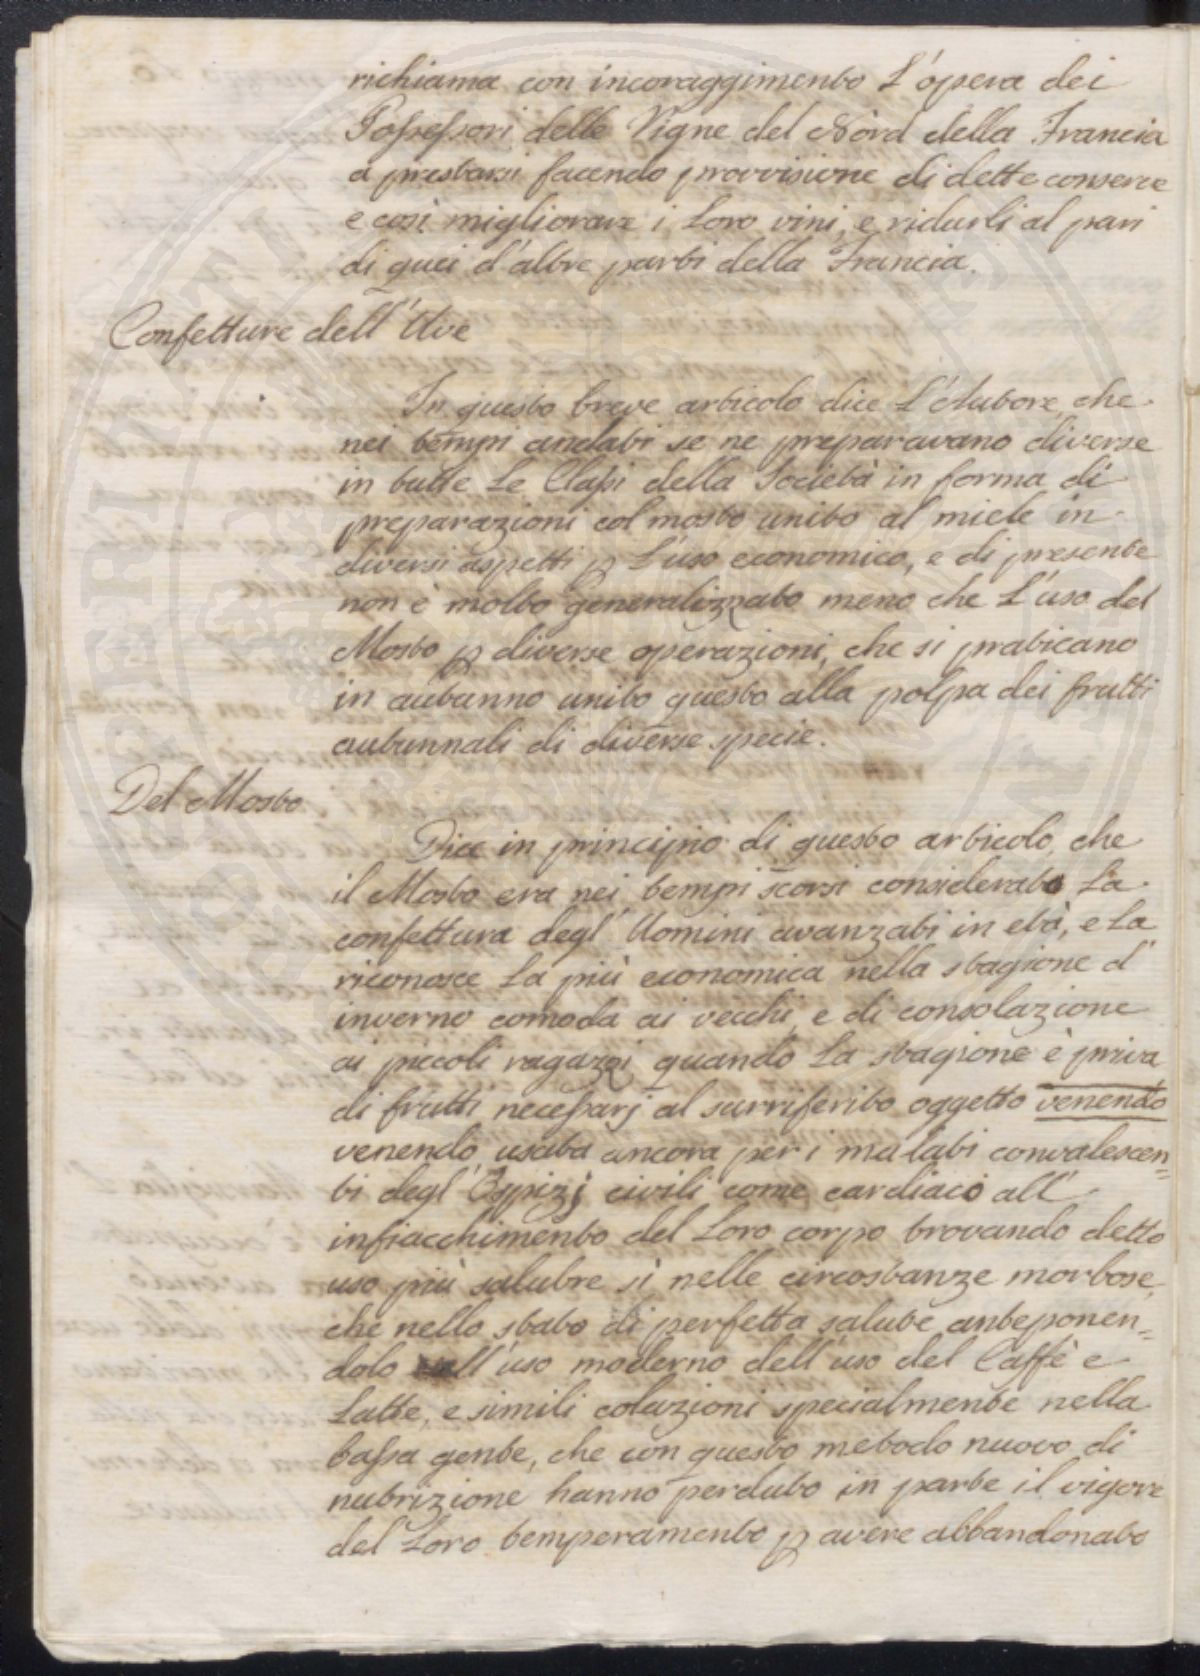 richiama con incoraggimento L'opera dei
Possessori delle Vigne del Nord della Francia
a prestarsi facendo provvisione di dette conserve
e così migliorare i Loro vini, e ridurli al pari
di quei d'altre parti della Francia.
Confetture dell'Uve
In questo breve articolo dice L'Autore, che
nei tempi andati se ne preparavano diverse
in tutte Le Classi della Società in forma di
preparazioni col mosto unito al miele in
diversi aspetti p L'uso economico, e di presente
non è molto generalizzato meno che L'uso del
Mosto p diverse operazioni, che si praticano
in autanno unito questo alla polpa dei frutti
autunnali di diverse specie.
Del Mosto
Dice in principio di questo articolo, che
il Mosto era nei tempi scorsi considerato La
confettura degl'Uomini avanzati in età, e La
riconosce La più economica nella stagione d'
inverno comoda ai vecchi, e di consolazione
ai piccoli ragazzi quando La stagione è priva
di frutti necessarj al surriferito oggetto venendo
venendo usata ancora per i malati convalescen=
ti degl'Ospizj civili come cardiaci all'
infiacchimento del Loro corpo trovando detto
uso più salubre sì nelle circostanze morbose,
che nello stato di perfetta salute anteponen=
dolo all'uso moderno dell'uso del Caffè e
Latte, e simili colazioni specialmente nella
bassa gente, che con questo metodo nuovo di
nutrizione hanno perduto in parte il vigore
del Loro temperamento p avere abbandonato